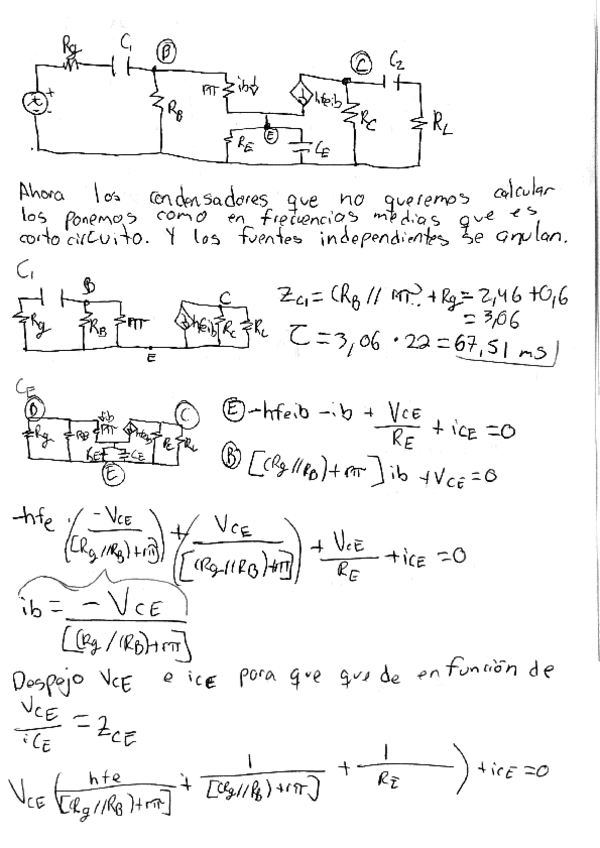 Rg C₁ Ⓑ Ⓒ C₂
+ rπ ib↓ hfeib
- R_B Ⓔ R_C R_L
R_E C_E
Ahora los condensadores que no queremos calcular
los ponemos como en frecuencias medias que es
cortocircuito. Y las fuentes independientes se anulan.
C₁
B C Z_C₁ = (R_B // rπ) + Rg = 2,46 + 0,6
Rg R_B rπ hfeib R_C R_L = 3,06
E τ = 3,06 · 22 = 67,51 ms
C_E
Ⓑ ib Ⓒ Ⓔ -hfeib - ib + V_CE/R_E + i_CE = 0
Rg R_B rπ hfeib R_C R_L
R_E C_E Ⓑ [(Rg//R_B) + rπ] ib + V_CE = 0
Ⓔ
-hfe · (-V_CE/[(Rg//R_B) + rπ]) + (V_CE/[(Rg//R_B) + rπ]) + V_CE/R_E + i_CE = 0
ib = -V_CE/[(Rg//R_B) + rπ]
Despejo V_CE e i_CE para que quede en función de
V_CE/i_CE = Z_CE
V_CE (hfe/[(Rg//R_B) + rπ] + 1/[(Rg//R_B) + rπ] + 1/R_E) + i_CE = 0